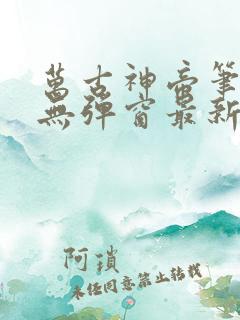 萬古神帝筆
無彈窗最新
阿瑣
未經同意禁止轉載